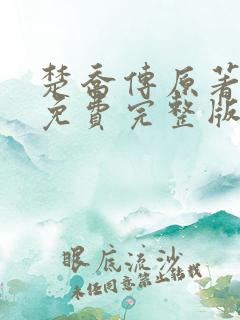 楚喬傳原著
免費完整版
眼底流沙
未任同意禁止转载